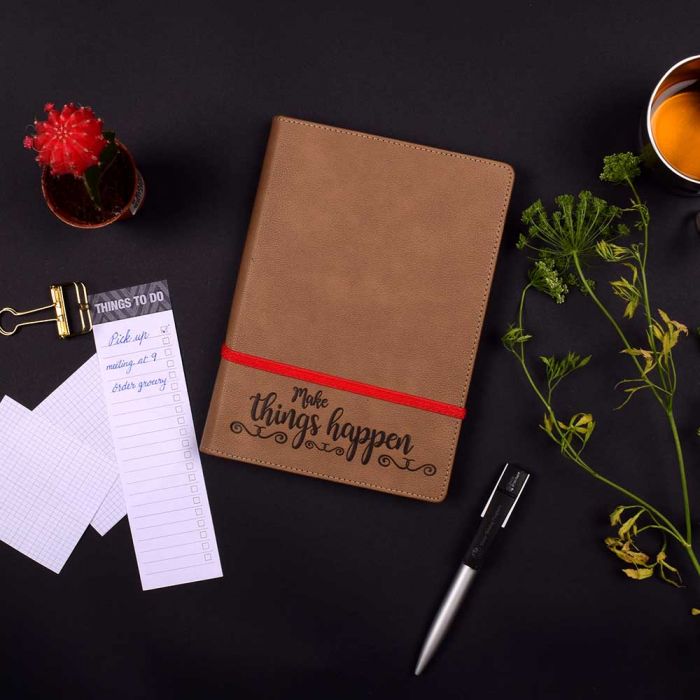 THINGS TO DO
Pick up
meeting at 9
order grocery
Make
things happen